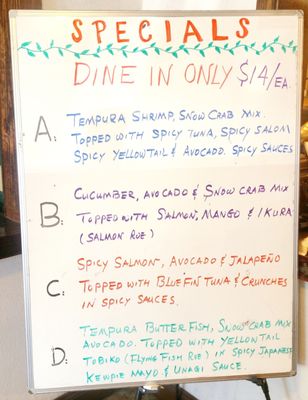 SPECIALS
DINE IN ONLY $14/EA.
A: TEMPURA SHRIMP, SNOW CRAB MIX.
TOPPED WITH SPICY TUNA, SPICY SALOM
SPICY YELLOWTAIL & AVOCADO. SPICY SAUCES
B: CUCUMBER, AVOCADO & SNOW CRAB MIX
TOPPED WITH SALMON, MANGO & IKURA
(SALMON ROE)
C: SPICY SALMON, AVOCADO & JALAPEÑO
TOPPED WITH BLUEFIN TUNA & CRUNCHES
IN SPICY SAUCES.
D: TEMPURA BUTTER FISH, SNOW CRAB MIX
AVOCADO. TOPPED WITH YELLOWTAIL
TOBIKO (FLYING FISH ROE) IN SPICY JAPANESE
KEWPIE MAYO & UNAGI SAUCE.